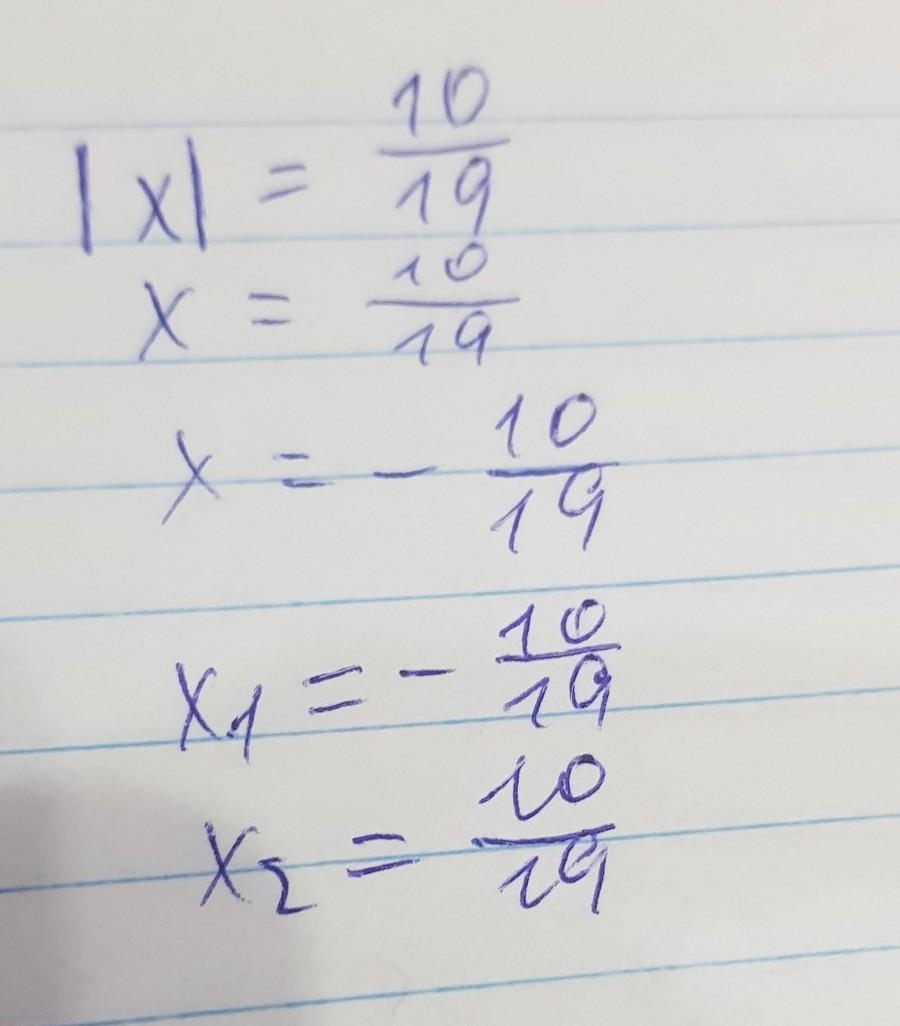 |x| = 10/19
x = 10/19
x = - 10/19
x₁ = - 10/19
x₂ = 10/19